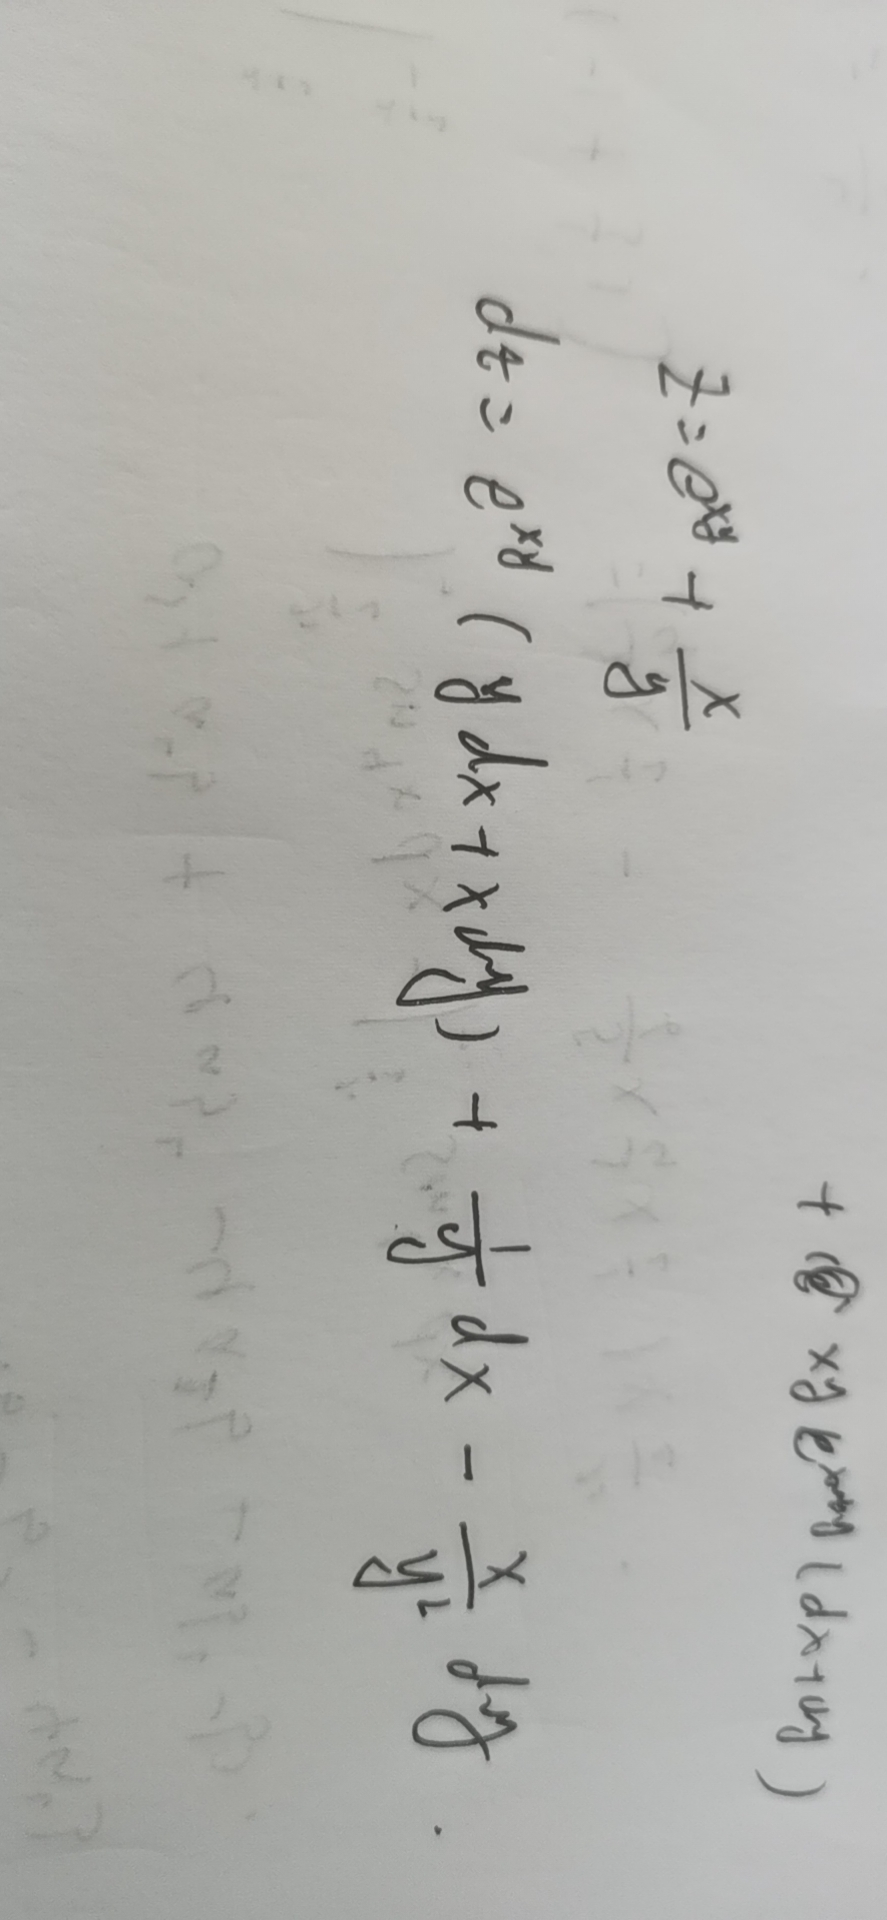 + xy e^{x+y} (dx+dy)
z = e^{xy} + \frac{x}{y}
dz = e^{xy} (y dx + x dy) + \frac{1}{y} dx - \frac{x}{y^2} dy.